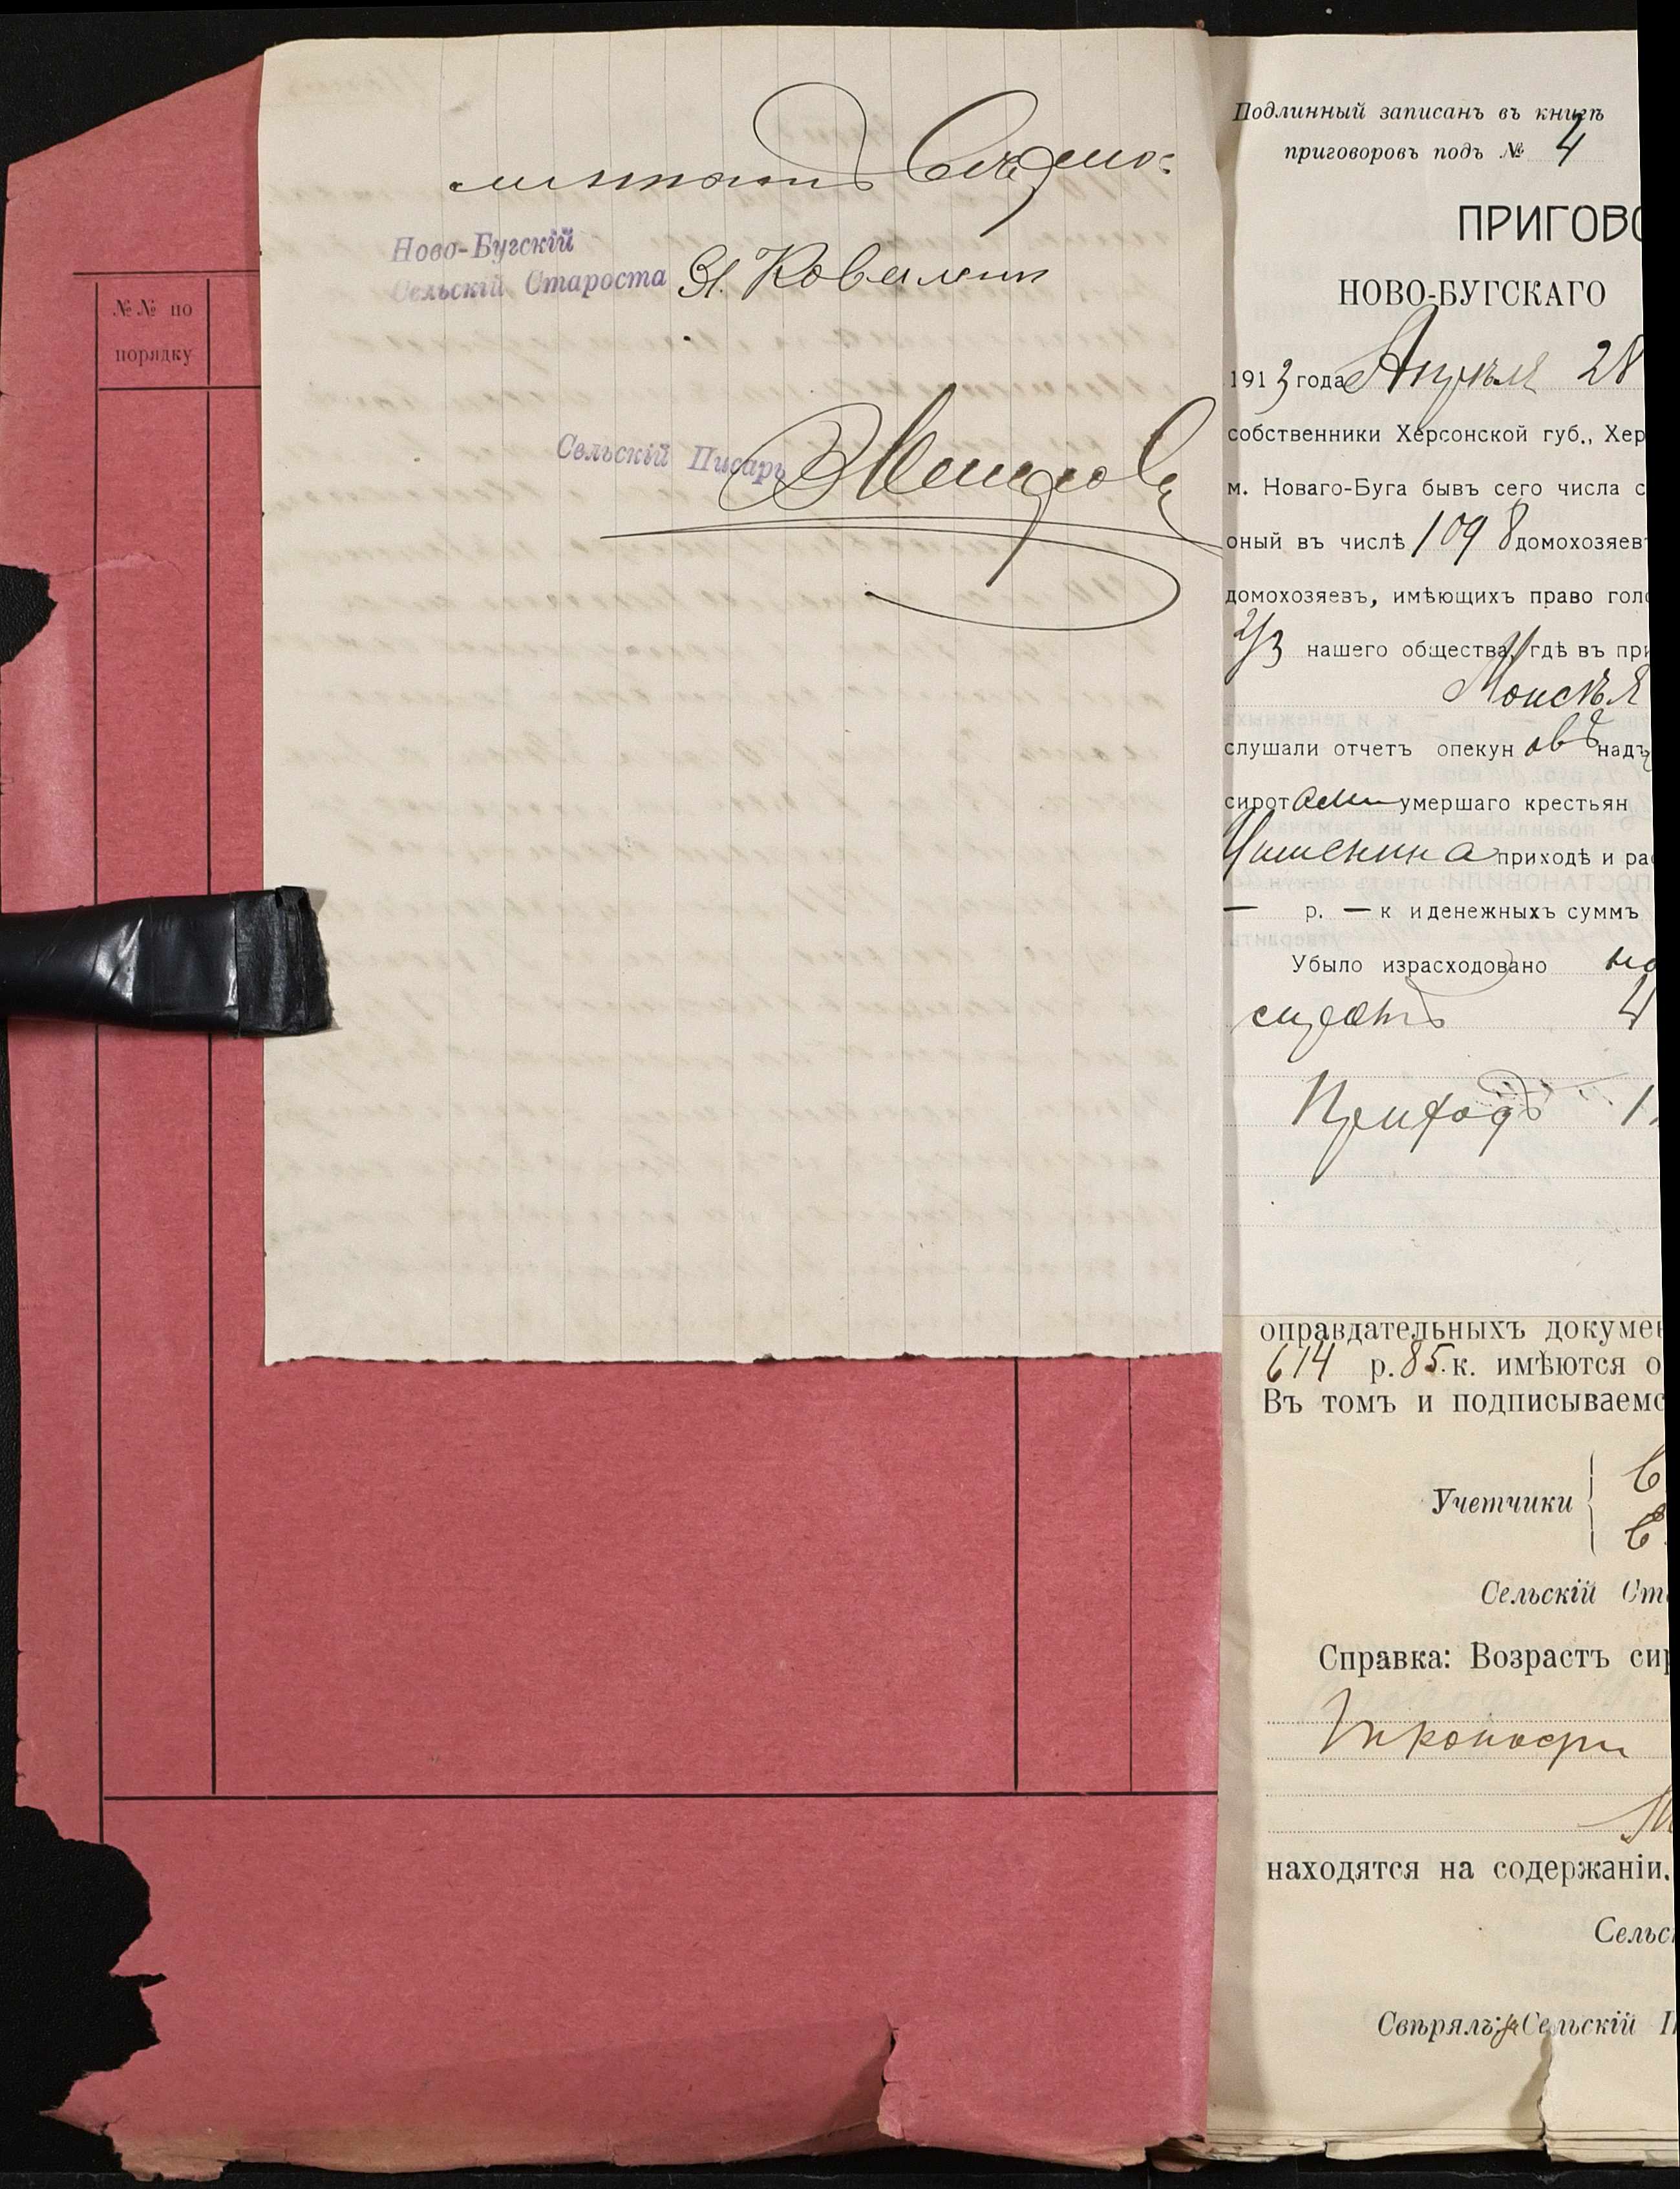 №№ по
порядку
Ново-Бугскій
Сельскій Староста Я. Ковалкин
Сельскій Писарь
Подлинный записанъ въ книгѣ
приговоровъ подъ № 4
ПРИГОВО
НОВО-БУГСКАГО
1913 года Апрѣля 28
собственники Херсонской губ., Хер
м. Новаго-Буга бывъ сего числа с
оный въ числѣ 1098 домохозяевъ
домохозяевъ, имѣющихъ право гол
2/3 нашего общества, гдѣ въ при
Моисѣя
слушали отчетъ опекуновъ надъ
сиротами умершаго крестьян
приходѣ и ра
— р. — к и денежныхъ суммъ
Убыло израсходовано на
сиротъ 4
Приходъ 1
оправдательныхъ докумен
614 р. 85 к. имѣются о
Въ томъ и подписываемс
Учетчики
Сельскій Ст
Справка: Возрастъ сир
находятся на содержаніи.
Сельс
Свѣрялъ: Сельскій П